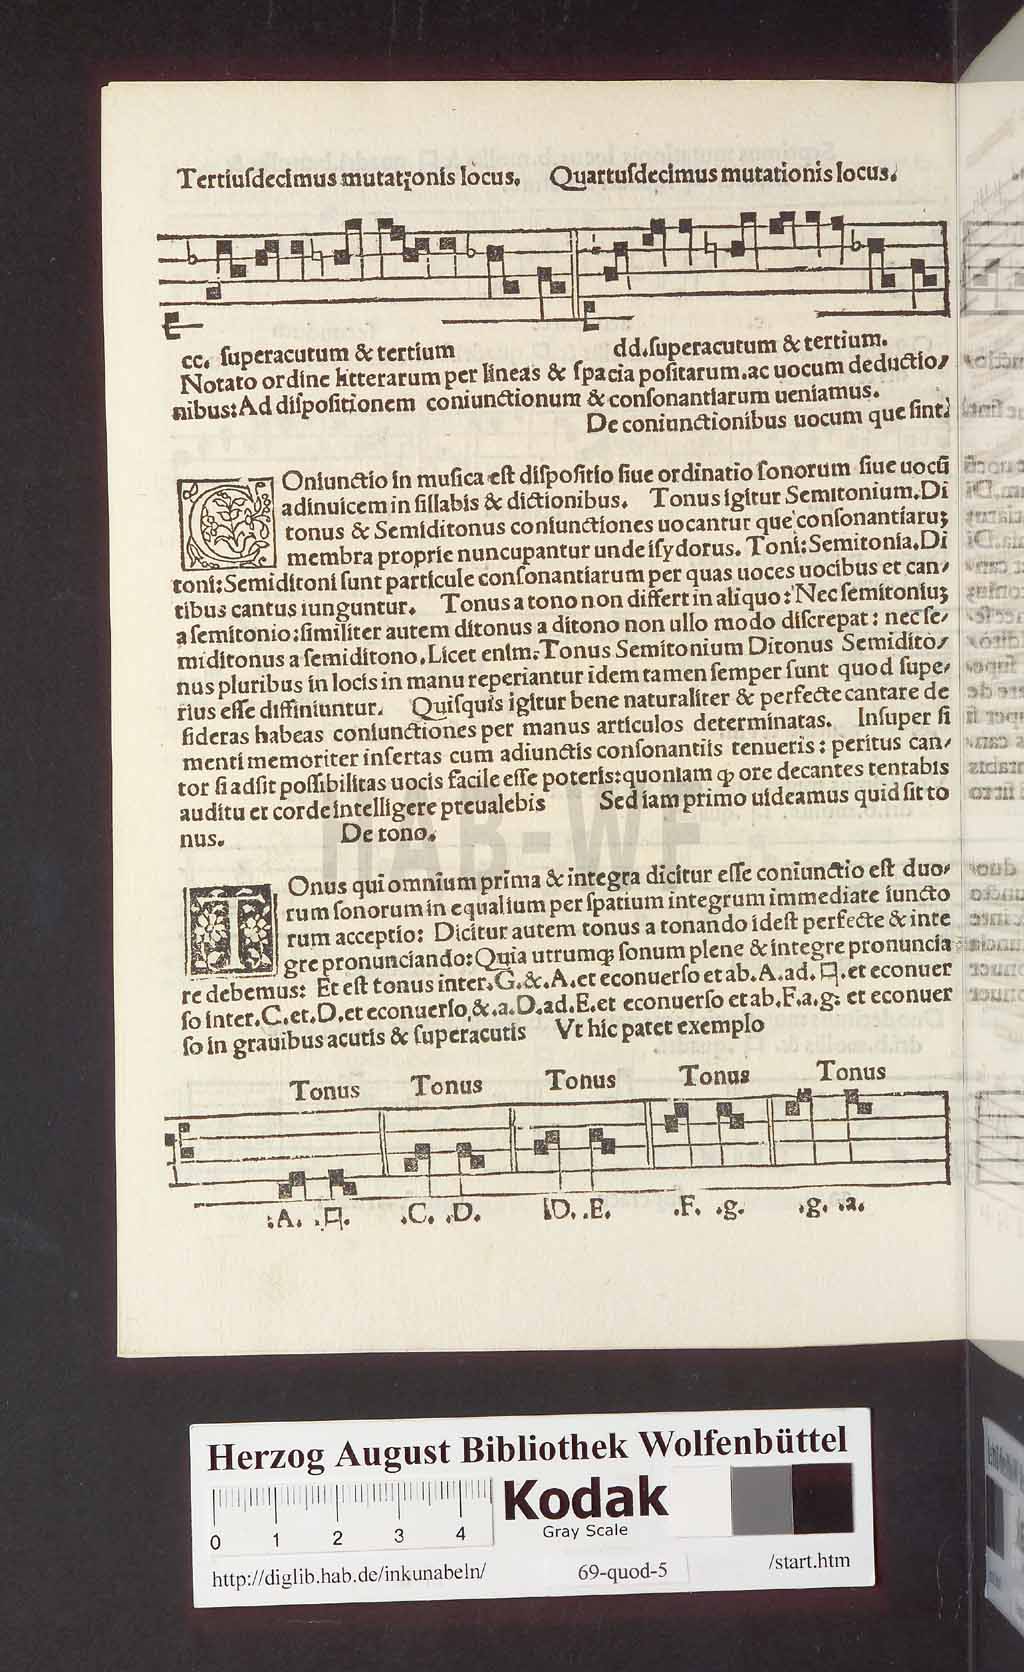 Tertiuſdecimus mutationis locus. Quartuſdecimus mutationis locus.
cc. ſuperacutum & tertium dd.ſuperacutum & tertium.
Notato ordine litterarum per lineas & ſpacia poſitarum.ac uocum deductio/
nibus:Ad diſpoſitionem coniunctionum & conſonantiarum ueniamus.
De coniunctionibus uocum que ſint.
COniunctio in muſica eſt diſpoſitio ſiue ordinatio ſonorum ſiue uocū
adinuicem in ſillabis & dictionibus. Tonus igitur Semitonium.Di
tonus & Semiditonus coniunctiones uocantur que conſonantiaruꝫ
membra proprie nuncupantur unde iſydorus. Toni:Semitonia.Di
toni:Semiditoni ſunt particule conſonantiarum per quas uoces uocibus et can/
tibus cantus iunguntur. Tonus a tono non differt in aliquo: Nec ſemitoniuꝫ
a ſemitonio:ſimiliter autem ditonus a ditono non ullo modo diſcrepat: nec ſe/
miditonus a ſemiditono.Licet enim:Tonus Semitonium Ditonus Semidito/
nus pluribus in locis in manu reperiantur idem tamen ſemper ſunt quod ſupe/
rius eſſe diffiniuntur. Quiſquis igitur bene naturaliter & perfecte cantare de
ſideras habeas coniunctiones per manus articulos determinatas. Inſuper ſi
menti memoriter inſertas cum adiunctis conſonantiis tenueris: peritus can/
tor ſi adſit poſſibilitas uocis facile eſſe poteris:quoniam ꝙ ore decantes tentabis
auditu et corde intelligere preualebis Sed iam primo uideamus quid ſit to
nus. De tono.
TOnus qui omnium prima & integra dicitur eſſe coniunctio eſt duo/
rum ſonorum in equalium per ſpatium integrum immediate iuncto
rum acceptio: Dicitur autem tonus a tonando ideſt perfecte & inte
gre pronunciando:Quia utrumqꝫ ſonum plene & integre pronuncia
re debemus: Et eſt tonus inter.G.&.A.et econuerſo et ab.A.ad.♮.et econuer
ſo inter.C.et.D.et econuerſo,&.a.D.ad.E.et econuerſo et ab.F.a.g: et econuer
ſo in grauibus acutis & ſuperacutis Vt hic patet exemplo
Tonus Tonus Tonus Tonus Tonus
:A. .♮. .C. .D. .D. .E. .F. .g. .g. .a.
HAB-WF
Herzog August Bibliothek Wolfenbüttel
0 1 2 3 4
Kodak
Gray Scale
http://diglib.hab.de/inkunabeln/ 69-quod-5 /start.htm